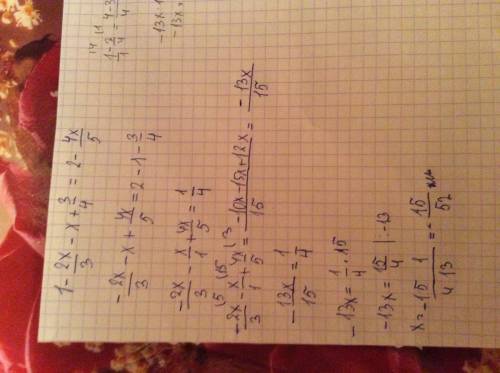 1 - 2x/3 - x + 3/4 = 2 - 4x/5
- 2x/3 - x + 4x/5 = 2 - 1 - 3/4
- 2x/3 - x/1 + 4x/5 = 1/4
- 2x/3 - x/1 + 4x/5 = (-10x - 15x + 12x)/15 = - 13x/15
- 13x/15 = 1/4
- 13x = 1/4 · 15
- 13x = 15/4 | : -13
x = - (15 1)/(4 13) = - 15/52
1 - 3/4 = (4 - 3)/4